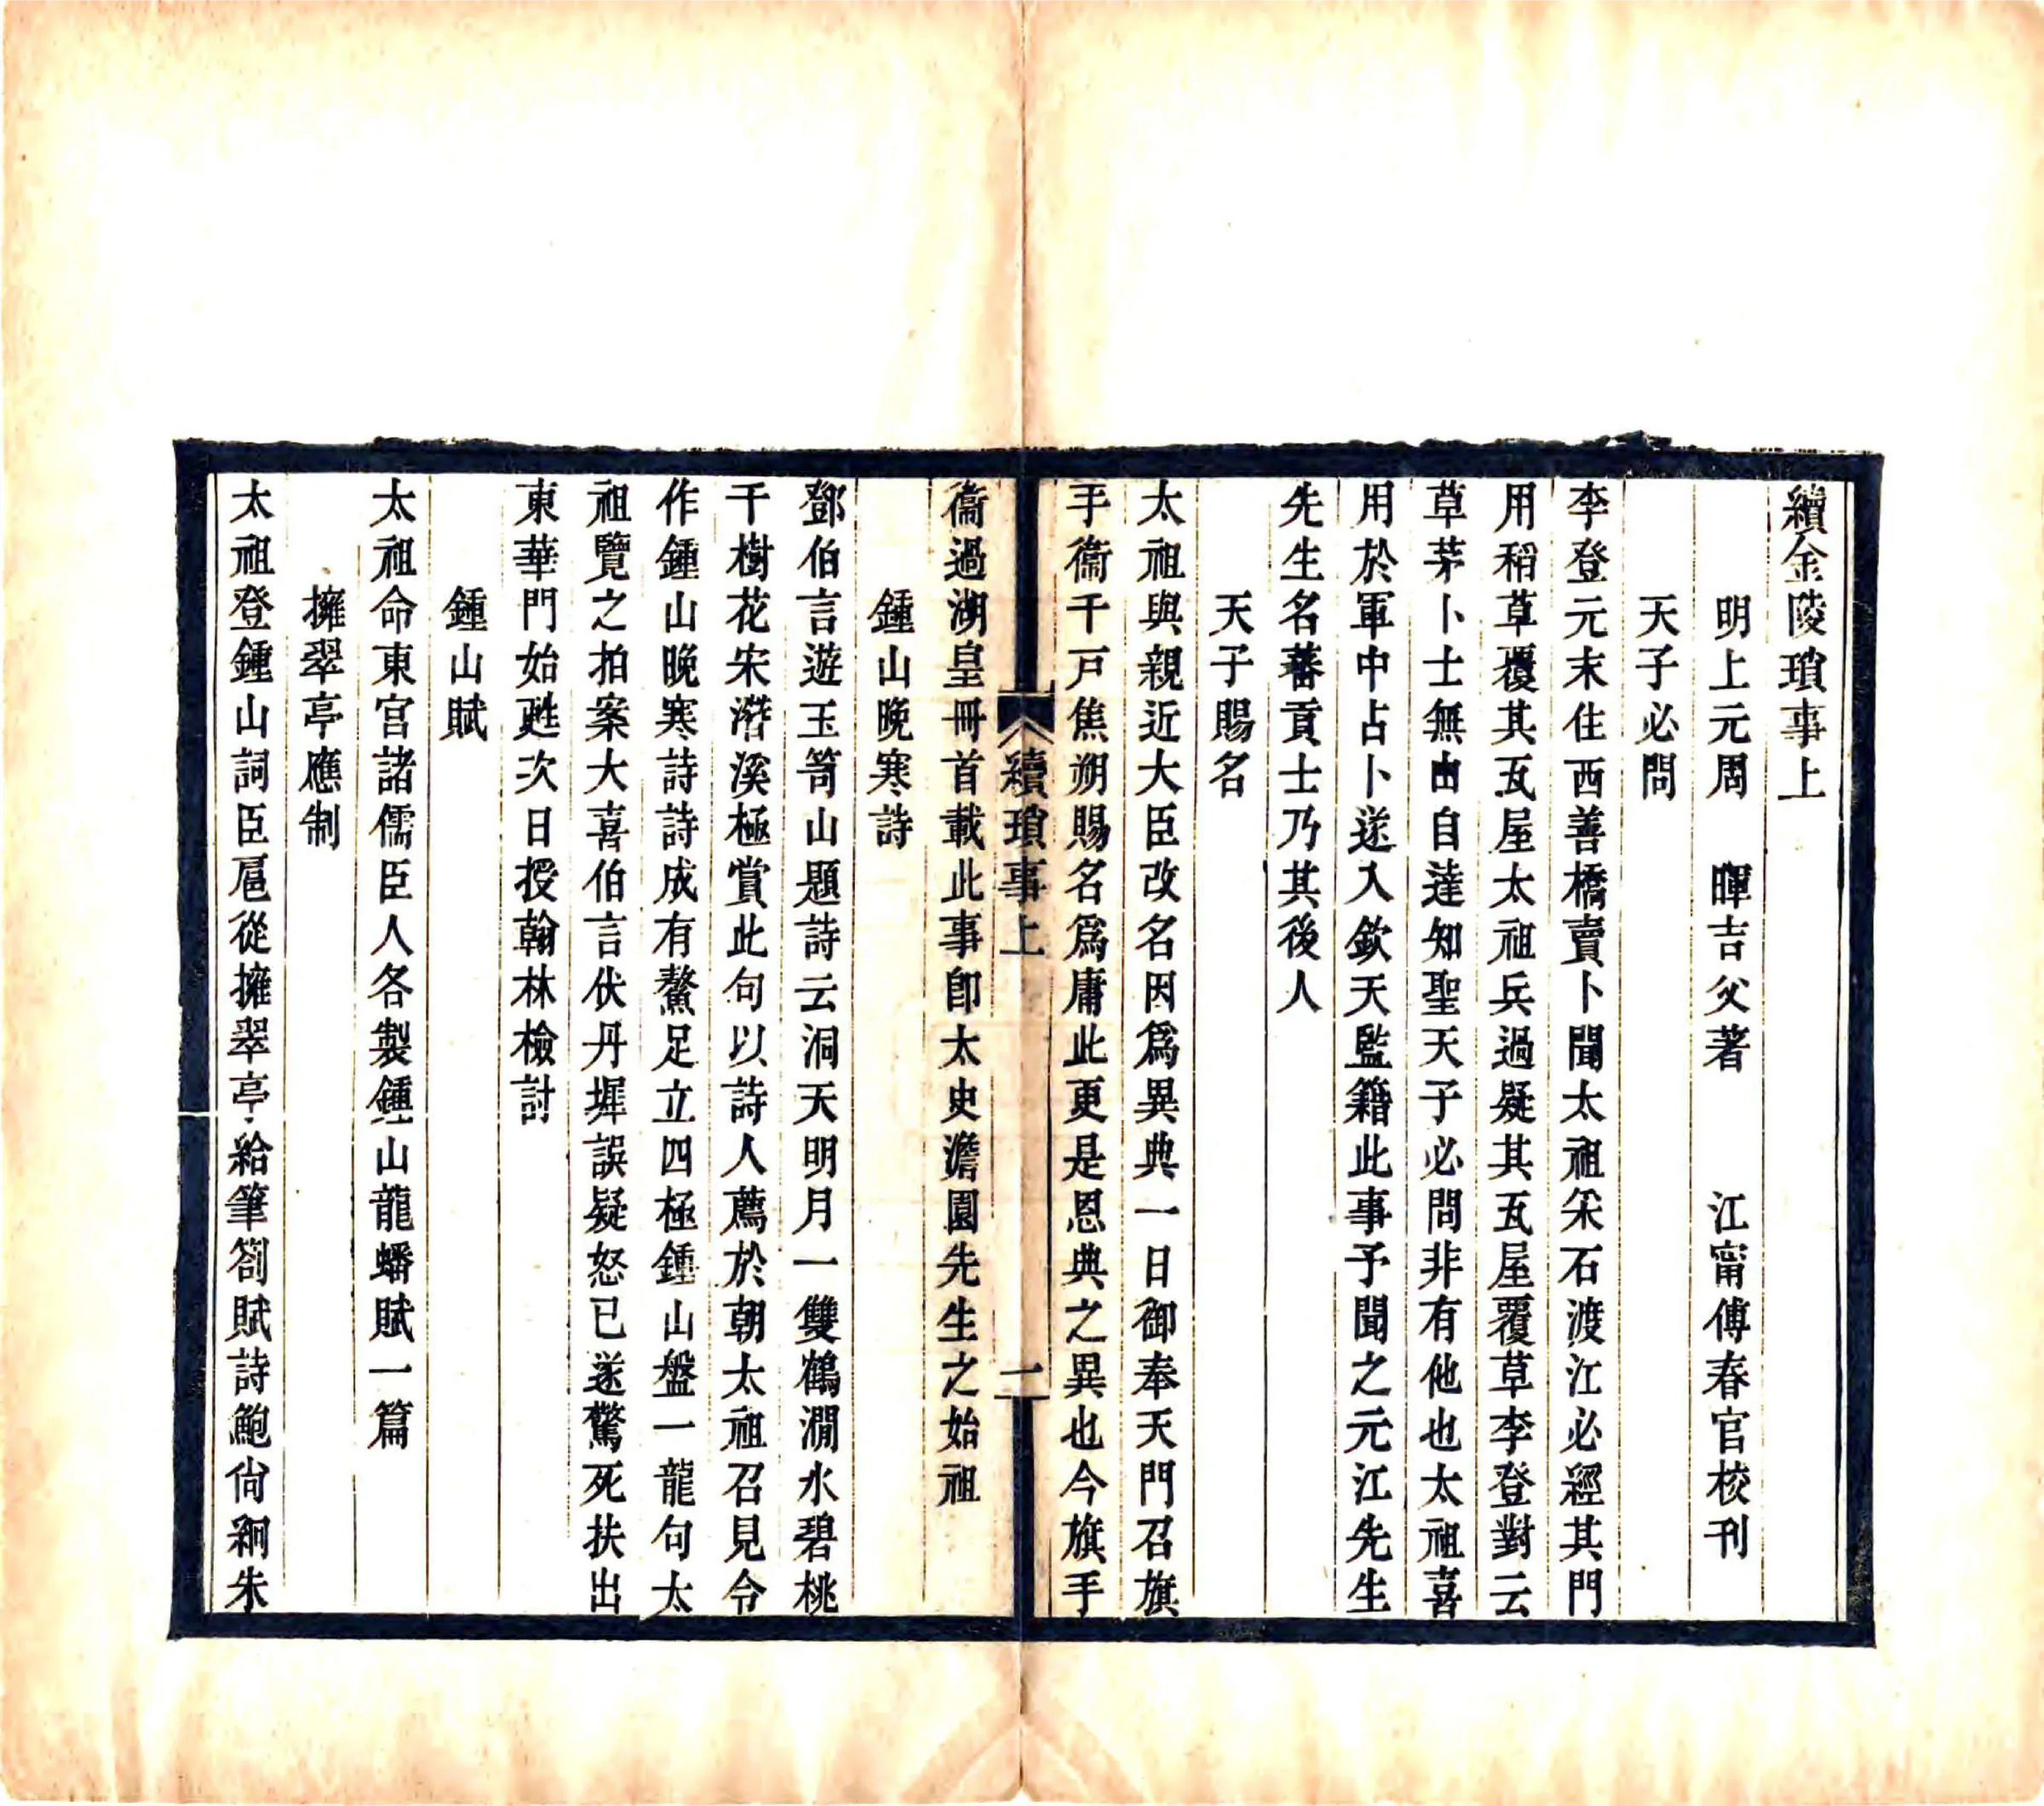 續金陵瑣事上
明上元周　暉吉父著　　江甯傅春官校刊
天子必問
李登元末住西善橋賣卜聞太祖采石渡江必經其門
用稻草覆其瓦屋太祖兵過疑其瓦屋覆草李登對云
草茅卜士無由自達知聖天子必問非有他也太祖喜
用於軍中占卜遂入欽天監籍此事予聞之元江先生
先生名蕃貢士乃其後人
天子賜名
太祖與親近大臣改名因爲異典一日御奉天門召旗
手衞千戸焦朔賜名爲庸此更是恩典之異也今旗手
衞過湖皇冊首載此事卽太史澹園先生之始祖
續瑣事上
一
鍾山晚寒詩
鄧伯言遊玉笥山題詩云洞天明月一雙鶴澗水碧桃
千樹花宋潛溪極賞此句以詩人薦於朝太祖召見令
作鍾山晚寒詩詩成有鰲足立四極鍾山盤一龍句太
祖覽之拍案大喜伯言伏丹墀誤疑怒已遂驚死扶出
東華門始甦次日授翰林檢討
鍾山賦
太祖命東宮諸儒臣人各製鍾山龍蟠賦一篇
擁翠亭應制
太祖登鍾山詞臣扈從擁翠亭給筆劄賦詩鮑尙絅朱